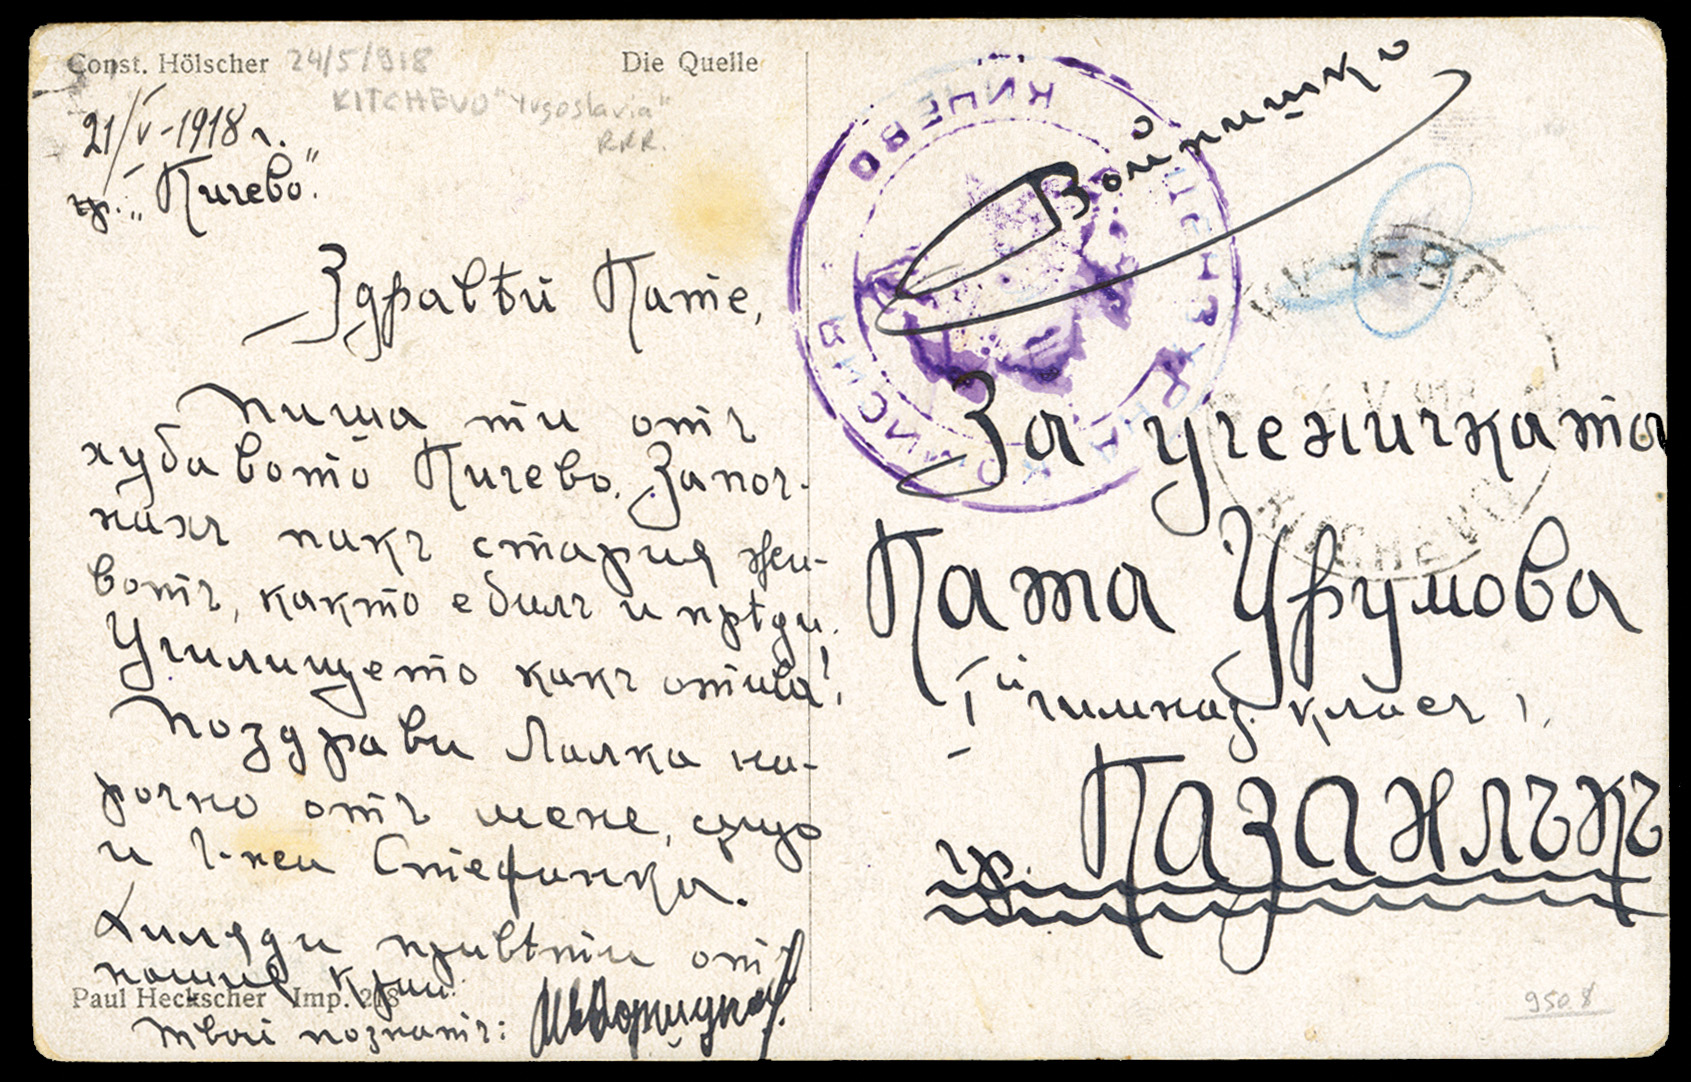 Const. Hölscher
24/5/918
Die Quelle
KITCHEVO "Yugoslavia"
RRR.
21/V-1918 г.
гр. „Кичево".
Здравѣй Кате,
Пиша ти отъ
хубавото Кичево. Започ-
нахъ пакъ стария жи-
вотъ, както е билъ и прѣди.
Училището какъ отива?
Поздрави Лалка на-
рочно отъ мене, също
и г-ца Стефанка.
Хиляди привѣти отъ
нашия край
Paul Heckscher Imp. 218
твой познатъ:
КИЧЕВО
Войнишко
КИЧЕВО
V 918
KICHEVO
За ученичката
Ката Урумова
I й гимназ. класъ
гр. Казанлъкъ
950 $